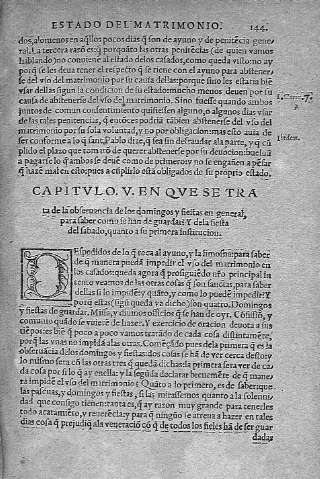 ESTADO DEL MATRIMONIO. 144.
dos, alomenos en aq̃llos pocos dias q̃ son de ayuno y de penitẽcia gene
ral. La tercera razõ es: q̃ por quãto las otras penitẽcias (de quien vamos
hablando) no conuiene al estado de los casados, como queda visto: no ay
porq̃ se les deua tener el respecto q̃ se tiene con el ayuno para abstener
se del vso del matrimonio por su causa
vsar dellas segun la condicion de su estado: mucho menos deuen por su
causa de abstenerse del vso del matrimonio. Sino fuesse quando ambos
juntos de comun consentimiento quisiessen alguno, o algunos dias vsar
de las tales penitencias, q̃ entõces podriã tãbien abstenerse del vso del
matrimonio por su sola voluntad, y no por obligacion: mas esto auia de
ser conforme a lo q̃ sant Pablo dize, q̃ sea sin defraudar ala parte, y q̃ cũ
plido el plazo que tomarõ de querer abstenerse por su deuocion: buelua
a pagarse lo q̃ ambos se deuẽ como de primero: y no se engañen a pẽsar
q̃ haze mal en esto: pues a cũplirlo esta obligados de su proprio estado.
CAPITVLO. V. EN QVE SE TRA
ta de la obseruencia de los domingos y fiestas en general,
para saber como se han de guardar: Y de la fiesta
del sabado, quanto a su primera institucion.
Despedidos de lo q̃ toca al ayuno, y la limosna: para saber
de q̃ manera puedã impedir el vso del matrimonio en
los casados: queda agora q̃ prosiguiẽdo nr̃o principal in
tento veamos de las otras cosas q̃ son sanctas, para saber
dellas si lo impidẽ y quãto, y como lo puede impedir: Y
porq̃ estas (segũ queda ya dicho) son quatro. Domingos
y fiestas de guardar. Missa, y diuinos officios q̃ se han de oyr. Cõfissiõ, y
comuniõ quãdo se vuiere de hazer. Y exercicio de oracion deuota a sus
tiẽpos: es biẽ q̃ poco a poco vamos tratãdo de cada cosa distintamẽte,
porq̃ las vnas no impidã alas otras. Comẽçãdo pues dela primera q̃ es la
obseruãcia de los domingos y fiestas: dos cosas se hã de ver cerca desto: y
lo mismo sera cõ las otras tres q̃ queda dichas: la primera sera ver de ca
da cosa por si lo q̃ ay en ella: y la segũda declarar breuemẽte de q̃ mane
ra impide el vso del matrimonio: Quãto a lo primero, es de saber: que
las pascuas, y domingos y fiestas, si las mirassemos quanto a la solenni
dad que consigo tienen: tanta es, q̃ ay razon muy grande para tenerles
todo acatamiẽto, y reuerẽcia: y para q̃ ninguno se atreua a hazer en tales
dias cosa q̃ perjudiq̃ ala veneraciõ cõ q̃ de todos los fieles hã de ser guar
dadas
1. Corin. 7.
Vbidem.